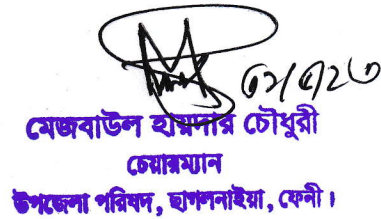 মেজবাউল হায়দার চৌধুরী
চেয়ারম্যান
উপজেলা পরিষদ, ছাগলনাইয়া, ফেনী।